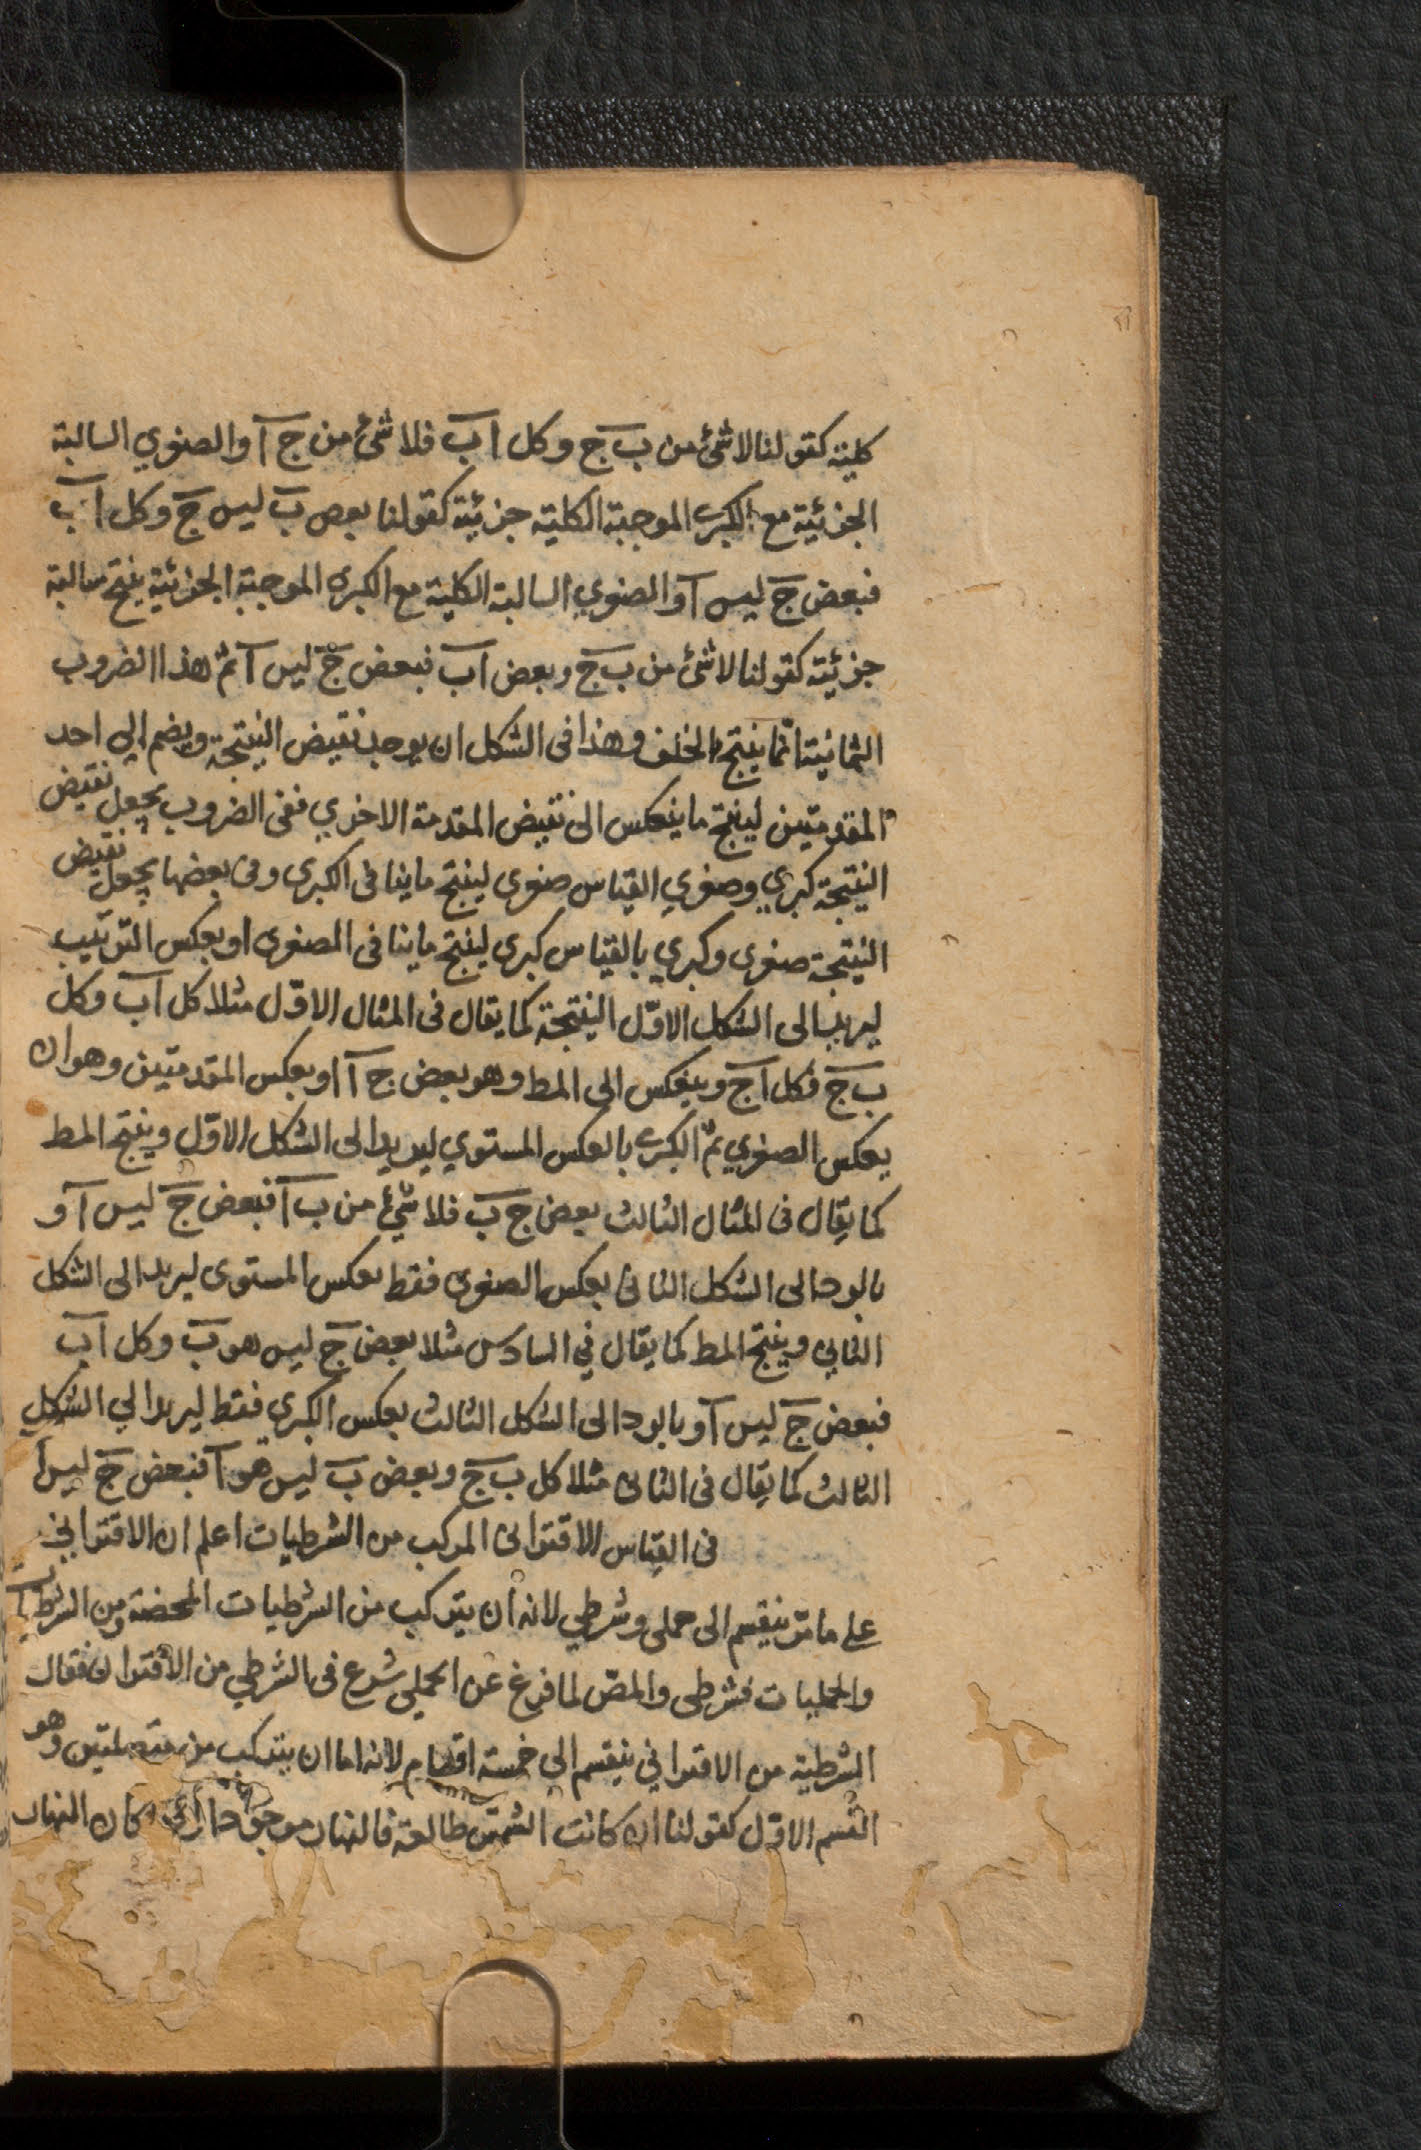 كلية كقولنا لا شئ من ب ج وكل ا ب فلا شئ من ج آ والصغري السالبة
الجزئية مع الكبرى الموجبة الكلية جزئية كقولنا بعض ب ليس ج وكل ا ب
فبعض ج ليس آ والصغري السالبة الكلية مع الكبرى الموجبة الجزئية ينتج سالبة
جزئية كقولنا لا شئ من ب ج وبعض ا ب فبعض ج ليس آ ثم هذا الضروب
الثمانية انما ينتج بالخلف وهذا فى الشكل ان يوجد نقيض النتيجة ويضم الي احد
المقدمتين لينتج ما ينعكس الى نقيض المقدمة الاخري ففى الضروب يجعل نقيض
النتيجة كبري وصغري القياس صغرى لينتج ما ينافى الكبرى وفى بعضها يجعل نقيض
النتيجة صغرى وكبري بالقياس كبرى لينتج ما ينافى الصغرى او بعكس الترتيب
ليرد الى الشكل الاوّل النتيجة كما يقال فى المثال الاوّل مثلا كل ا ب وكل
ب ج فكل ا ج وينعكس الى المط وهو بعض ج آ او بعكس المقدمتين وهو ان
يعكس الصغري ثم الكبرى بالعكس المستوي ليريدا الى الشكل الاوّل وينتج المط
كما يقال فى المثال الثالث بعض ج ب فلا شئ من ب آ فبعض ج ليس آ و
بالود الى الشكل الثانى بعكس الصغرى فقط بعكس المستوى ليردا الى الشكل
الثاني وينتج المط كما يقال في السادس مثلا بعض ج ليس هو ب وكل ا ب
فبعض ج ليس آ وبالود الى الشكل الثالث بعكس الكبري فقط ليردا الي الشكل
الثالث كما يقال فى الثانى مثلا كل ب ج وبعض ب ليس هو آ فبعض ج ليس آ
فى القياس الاقترانى المركب من الشرطيات اعلم ان الاقتراني
علي ما مرّ ينقسم الى حملى وشرطي لانه ان يتركب من الشرطيات المحضة ومن الشرطيات
والحمليات فشرطى والمصّ لما فرغ عن الحملي شرع فى الشرطي من الاقتران فقال
الشرطية من الاقتراني ينقسم الى خمسة اقسام لانه اما ان يتركب من متصلتين وهو
القسم الاوّل كقولنا ان كانت الشمس طالعة فالنهار موجود كان النهار